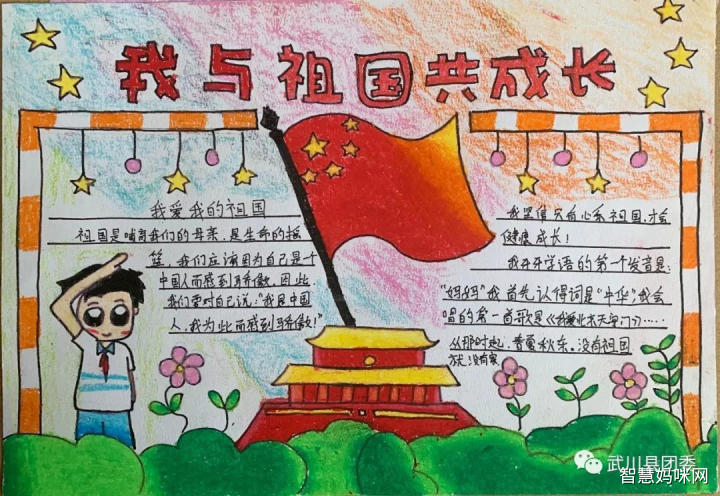 我与祖国共成长
我爱我的祖国
祖国是哺育我们的母亲，是生命的摇
篮，我们应该因为自己是个
中国人而感到骄傲。因此
我们要对自己说："我是中国
人，我为此而感到骄傲！"
我坚信只有心系祖国，才会
健康成长！
我牙牙学语的第一个发音是：
"妈妈"我首先认得词是"中华"我会
唱的第一首歌是《我爱北京天安门》……
从那时起，春夏秋冬。没有祖国
就没有家
武川县团委
智慧妈咪网